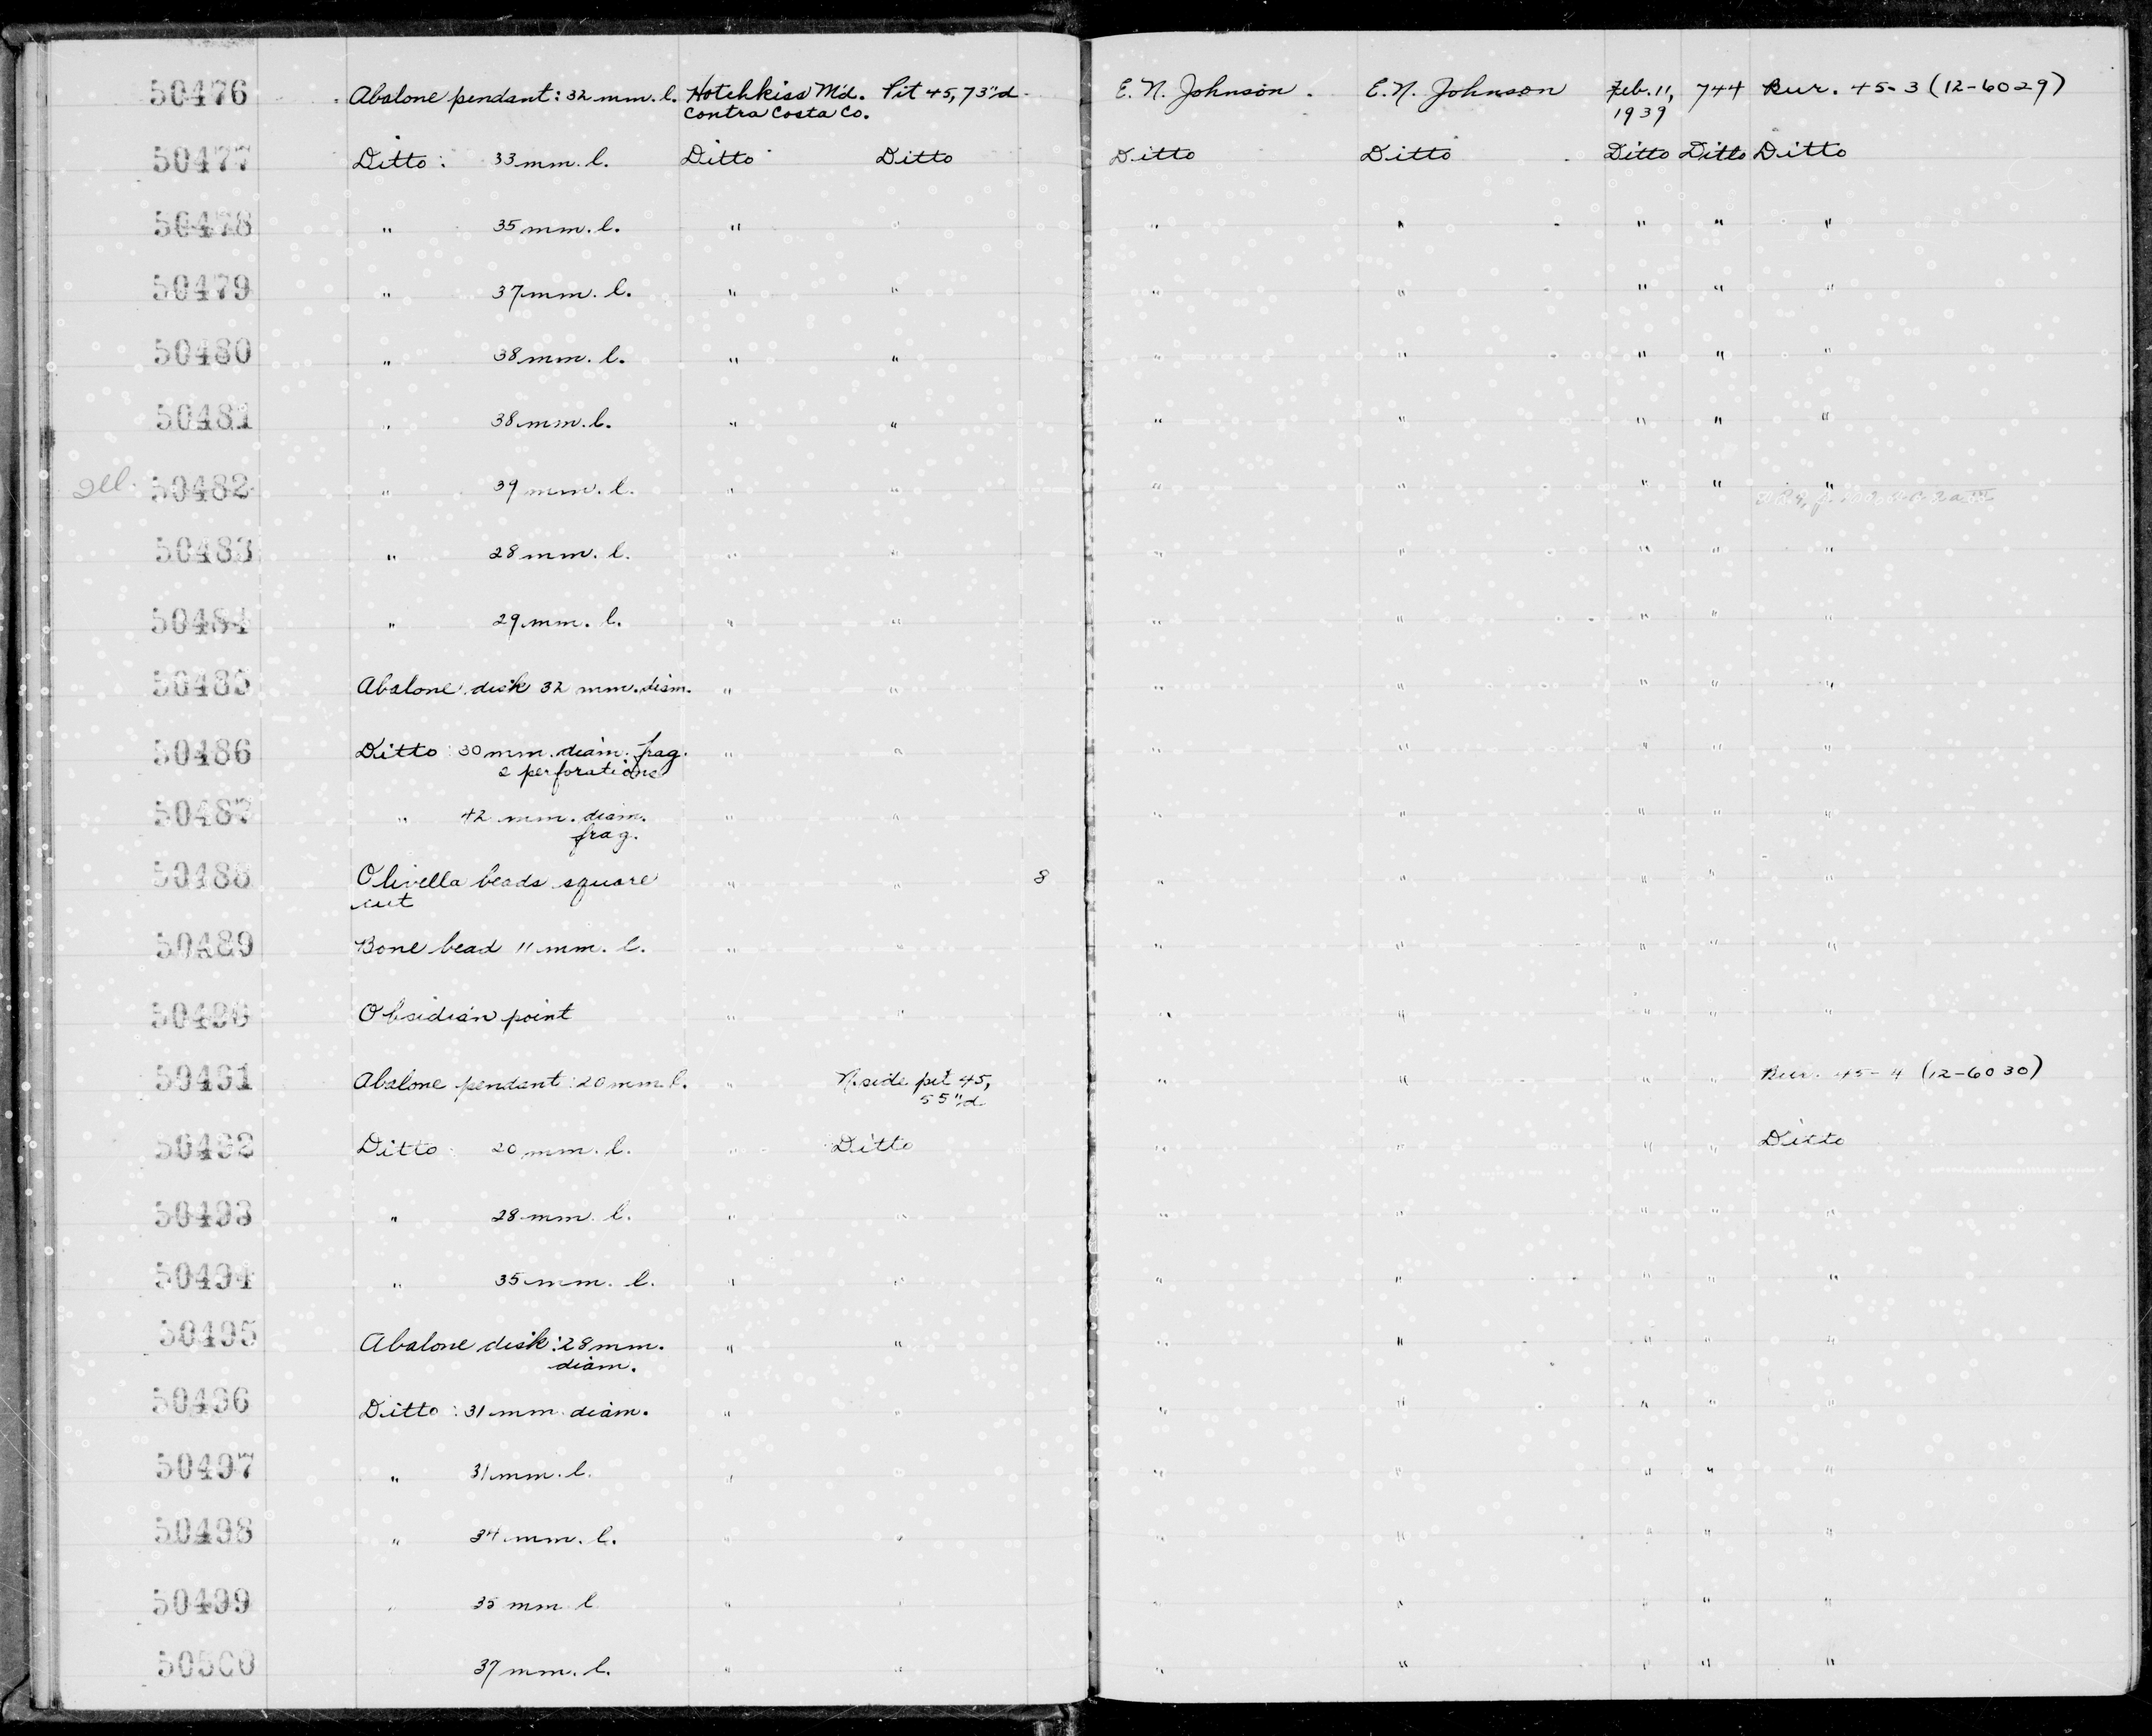 50476 Abalone pendant: 32 mm. l. Hotchkiss M'd. Pit 45, 73"d. E. N. Johnson. E. N. Johnson Feb. 11, 744 Bur. 45-3 (12-6029)
Contra Costa Co. 1939
50477 Ditto: 33 mm. l. Ditto Ditto Ditto Ditto Ditto Ditto Ditto
50478 " 35 mm. l. " " " " " " "
50479 " 37 mm. l. " " " " " " "
50480 " 38 mm. l. " " " " " " "
50481 " 38 mm. l. " " " " " " "
50482 " 39 mm. l. " " " " " " "
50483 " 28 mm. l. " " " " " " "
50484 " 29 mm. l. " " " " " " "
50485 Abalone disk 32 mm. diam. " " " " " " "
50486 Ditto: 30 mm. diam. frag. " " " " " " "
2 perforations
50487 " 42 mm. diam. " " " " " " "
frag.
50488 Olivella beads square " " 8 " " " " "
cut
50489 Bone bead 11 mm. l. " " " " " " "
50490 Obsidian point " " " " " " "
50491 Abalone pendant: 20 mm l. " N. side pit 45, " " " " Bur. 45-4 (12-6030)
55"d
50492 Ditto 20 mm. l. " Ditto " " " " Ditto
50493 " 28 mm. l. " " " " " " "
50494 " 35 mm. l. " " " " " " "
50495 Abalone disk: 28 mm. " " " " " " "
diam.
50496 Ditto: 31 mm diam. " " " " " " "
50497 " 31 mm. l. " " " " " " "
50498 " 34 mm. l. " " " " " " "
50499 " 35 mm l " " " " " " "
50500 37 mm. l. " " " " " " "